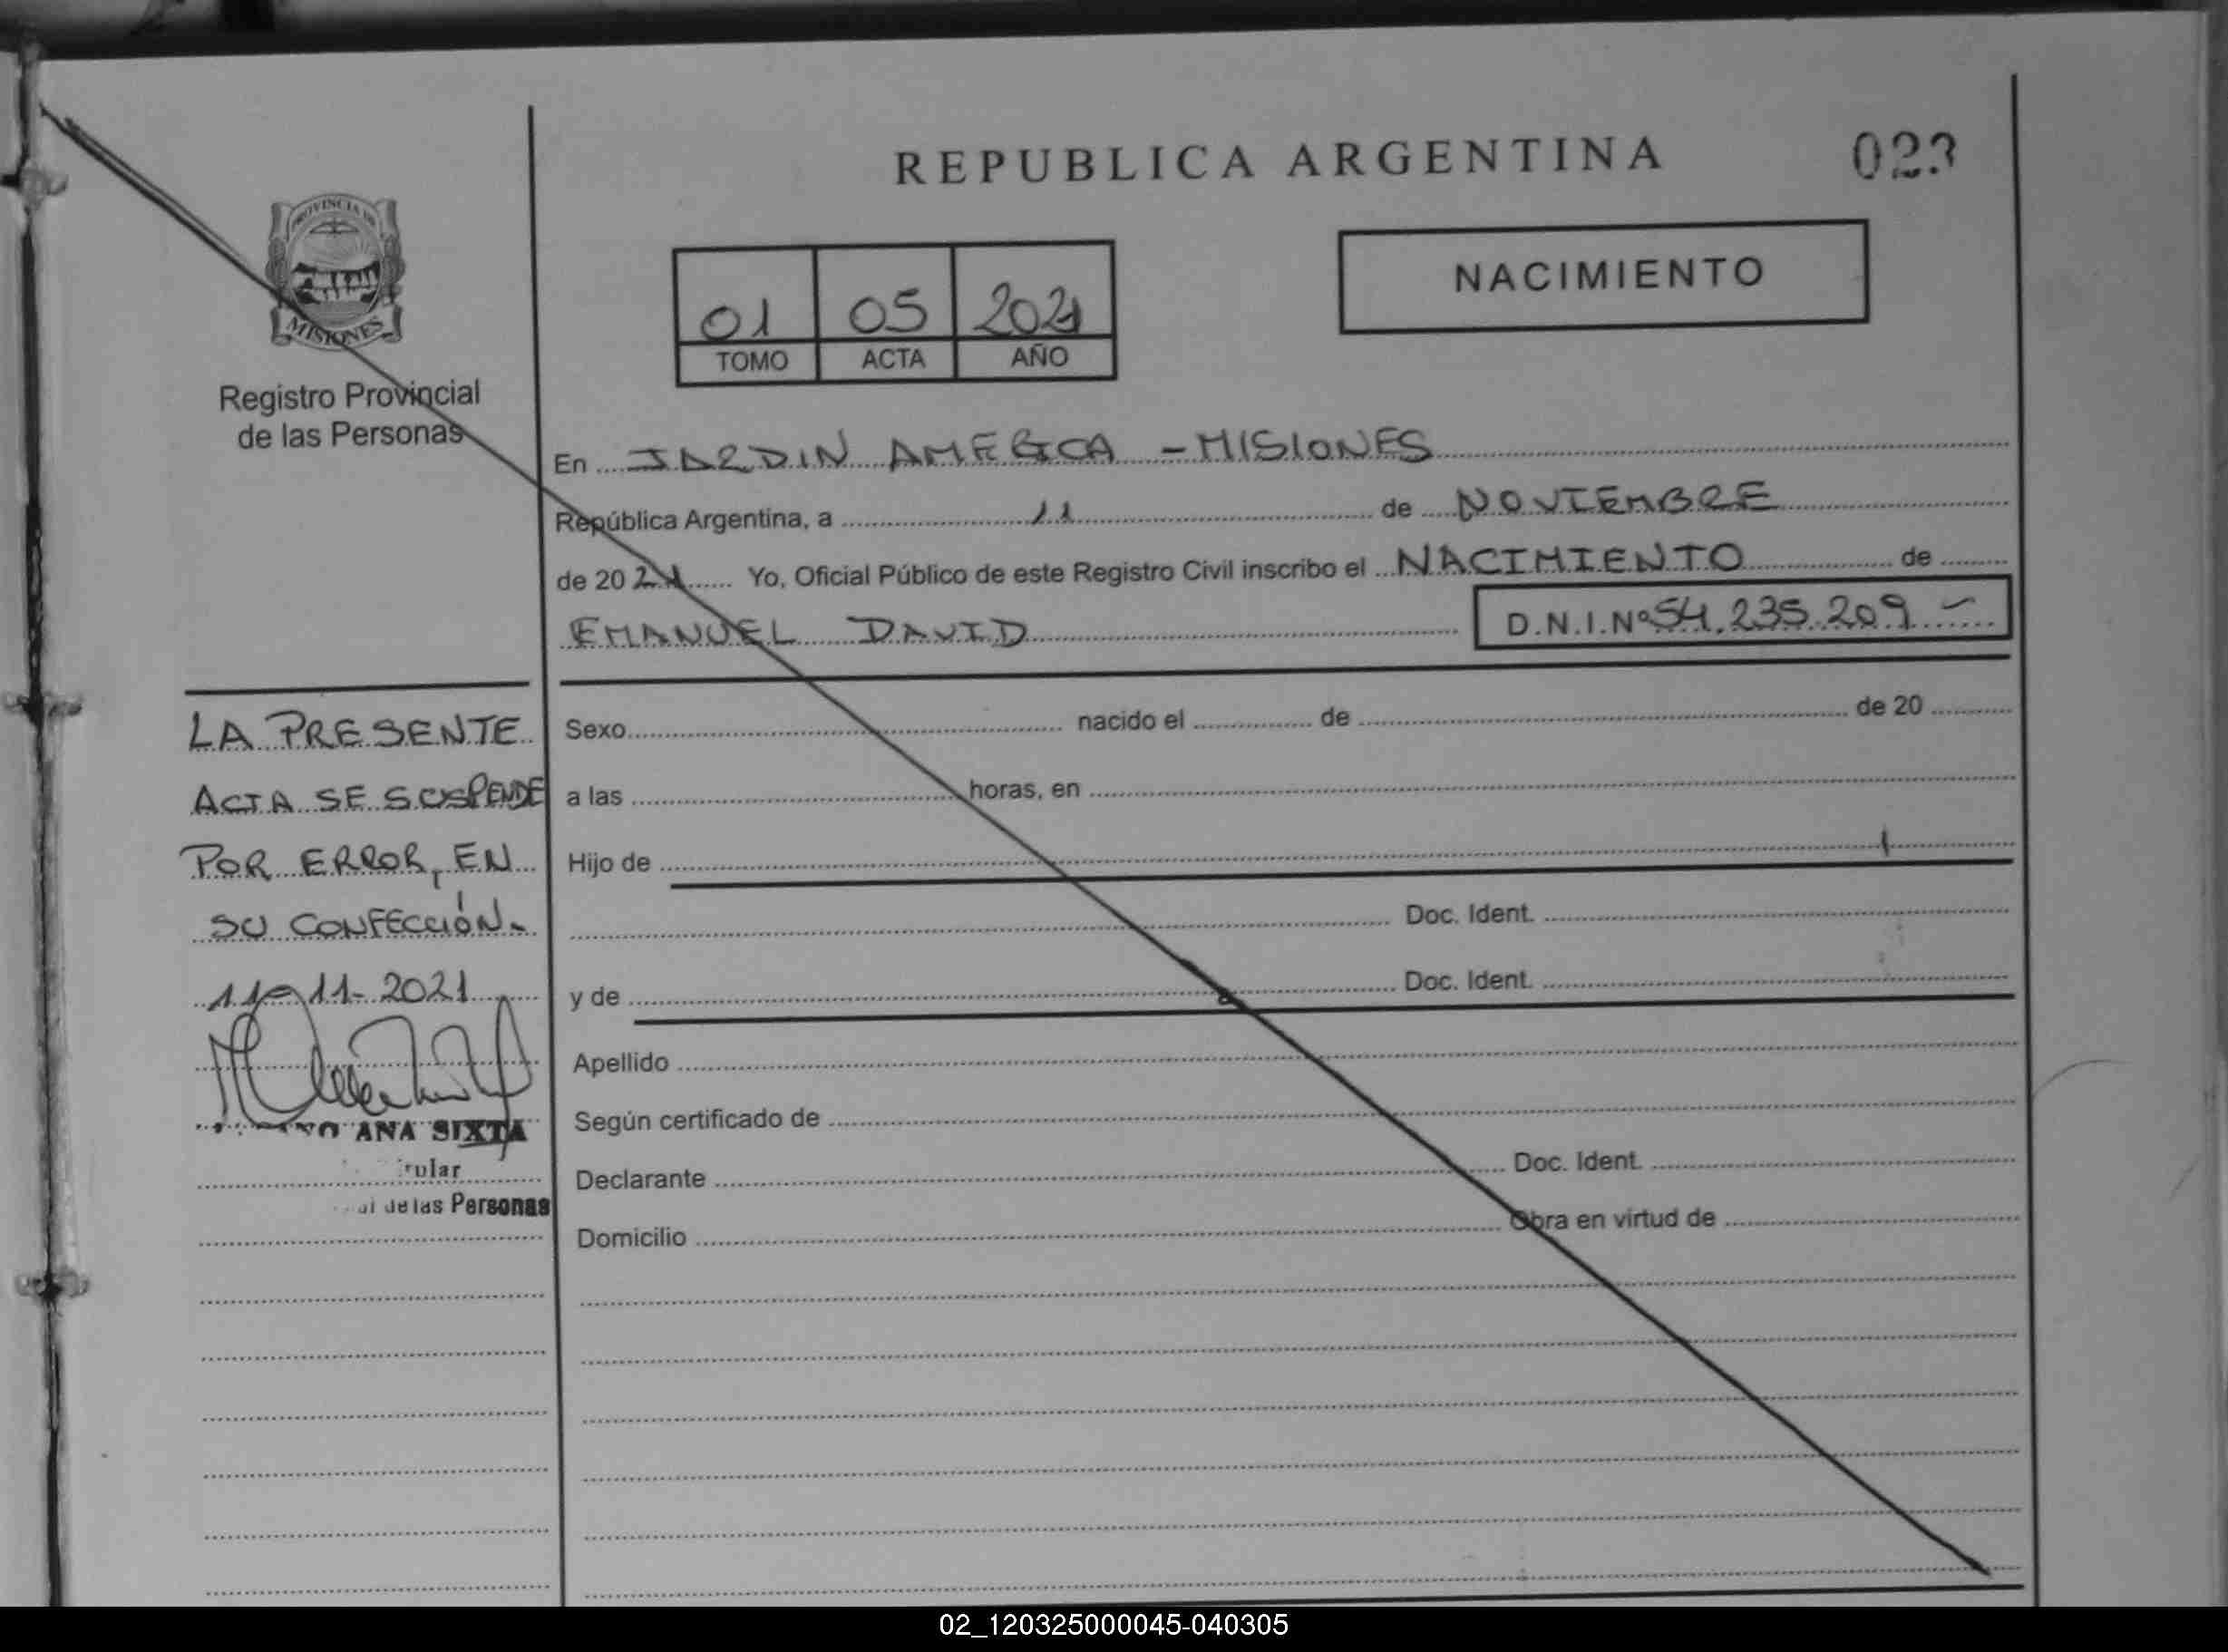 REPUBLICA ARGENTINA
023
PROVINCIA DE
MISIONES
Registro Provincial
de las Personas
NACIMIENTO
01 05 2021
TOMO ACTA AÑO
En JARDIN AMERICA - MISIONES
República Argentina, a 11 de NOVIEMBRE
de 2021 Yo, Oficial Público de este Registro Civil inscribo el NACIMIENTO de
EMANUEL DAVID D.N.I.Nº 54.235.209 -
LA PRESENTE
ACTA SE SUSPENDE
POR ERROR, EN
SU CONFECCIÓN-
11-11-2021
ANA SIXTA
de las Personas
Sexo nacido el de de 20
a las horas, en
Hijo de
Doc. Ident.
y de Doc. Ident.
Apellido
Según certificado de
Declarante Doc. Ident.
Domicilio Obra en virtud de
02_120325000045-040305